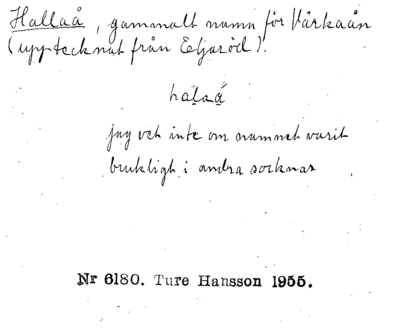 Hallaå, gammalt namn för Vårkaån
(upptecknat från Eljaröd).
halaá
jag vet inte om namnet varit
brukligt i andra socknar
Nr 6180. Ture Hansson 1955.